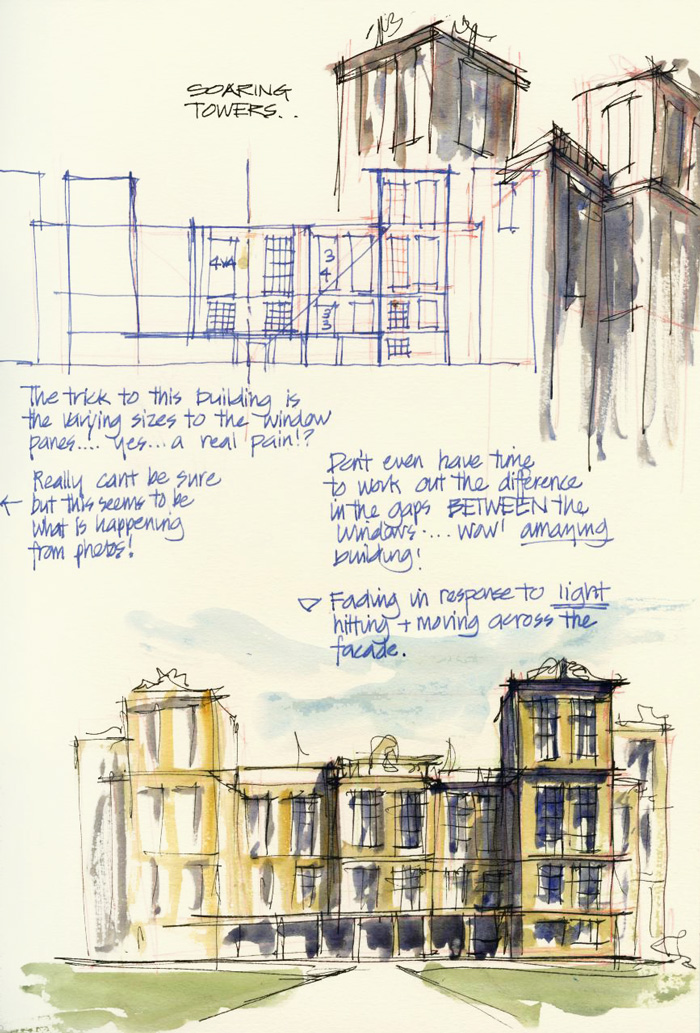 SOARING
TOWERS..
4x4
3
4
3
3
The trick to this building is
the varying sizes to the window
panes.... yes... a real pain!?
Really can't be sure
but this seems to be
what is happening
from photos!
Don't even have time
to work out the difference
in the gaps BETWEEN the
windows.... wow! amazing
building!
Fading in response to light
hitting + moving across the
facade.